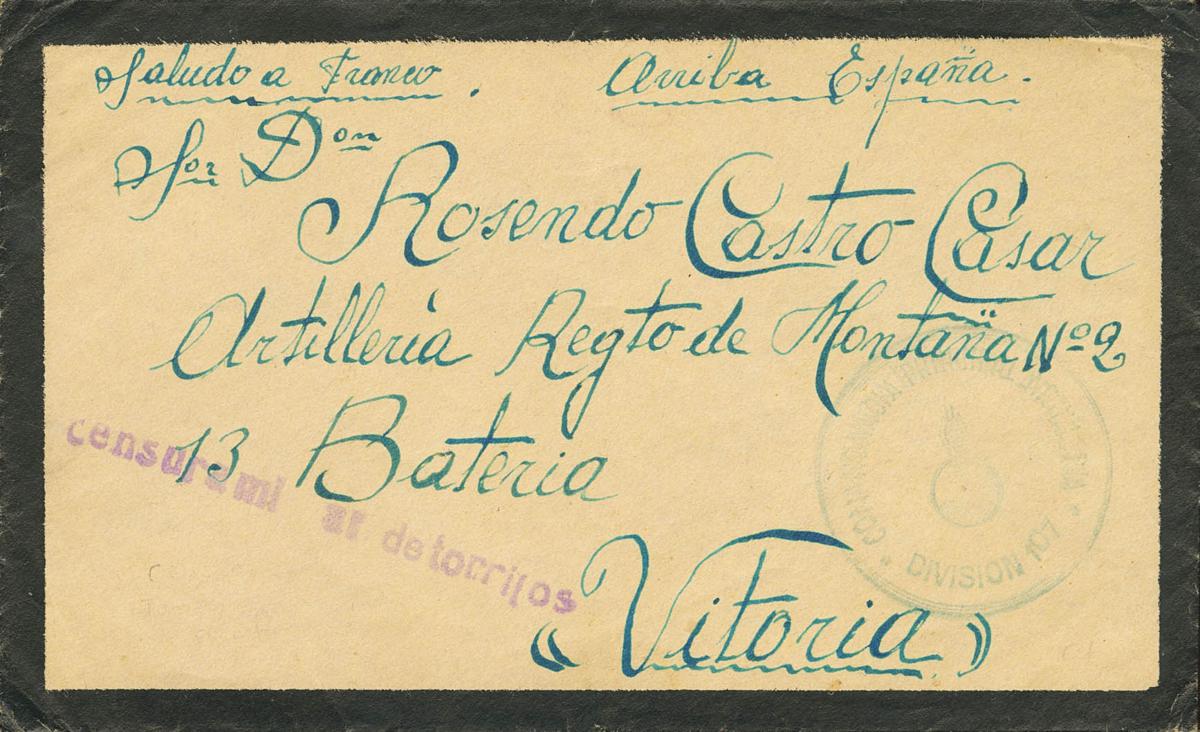 Saludo a Franco. Arriba España.
Sor Don
Rosendo Castro Casar
Artilleria Regto de Montaña Nº 2
13 Bateria
«Vitoria»
censura mi ar de torrijos
PRINCIPAL DE ARTILLERIA * DIVISION 107 *